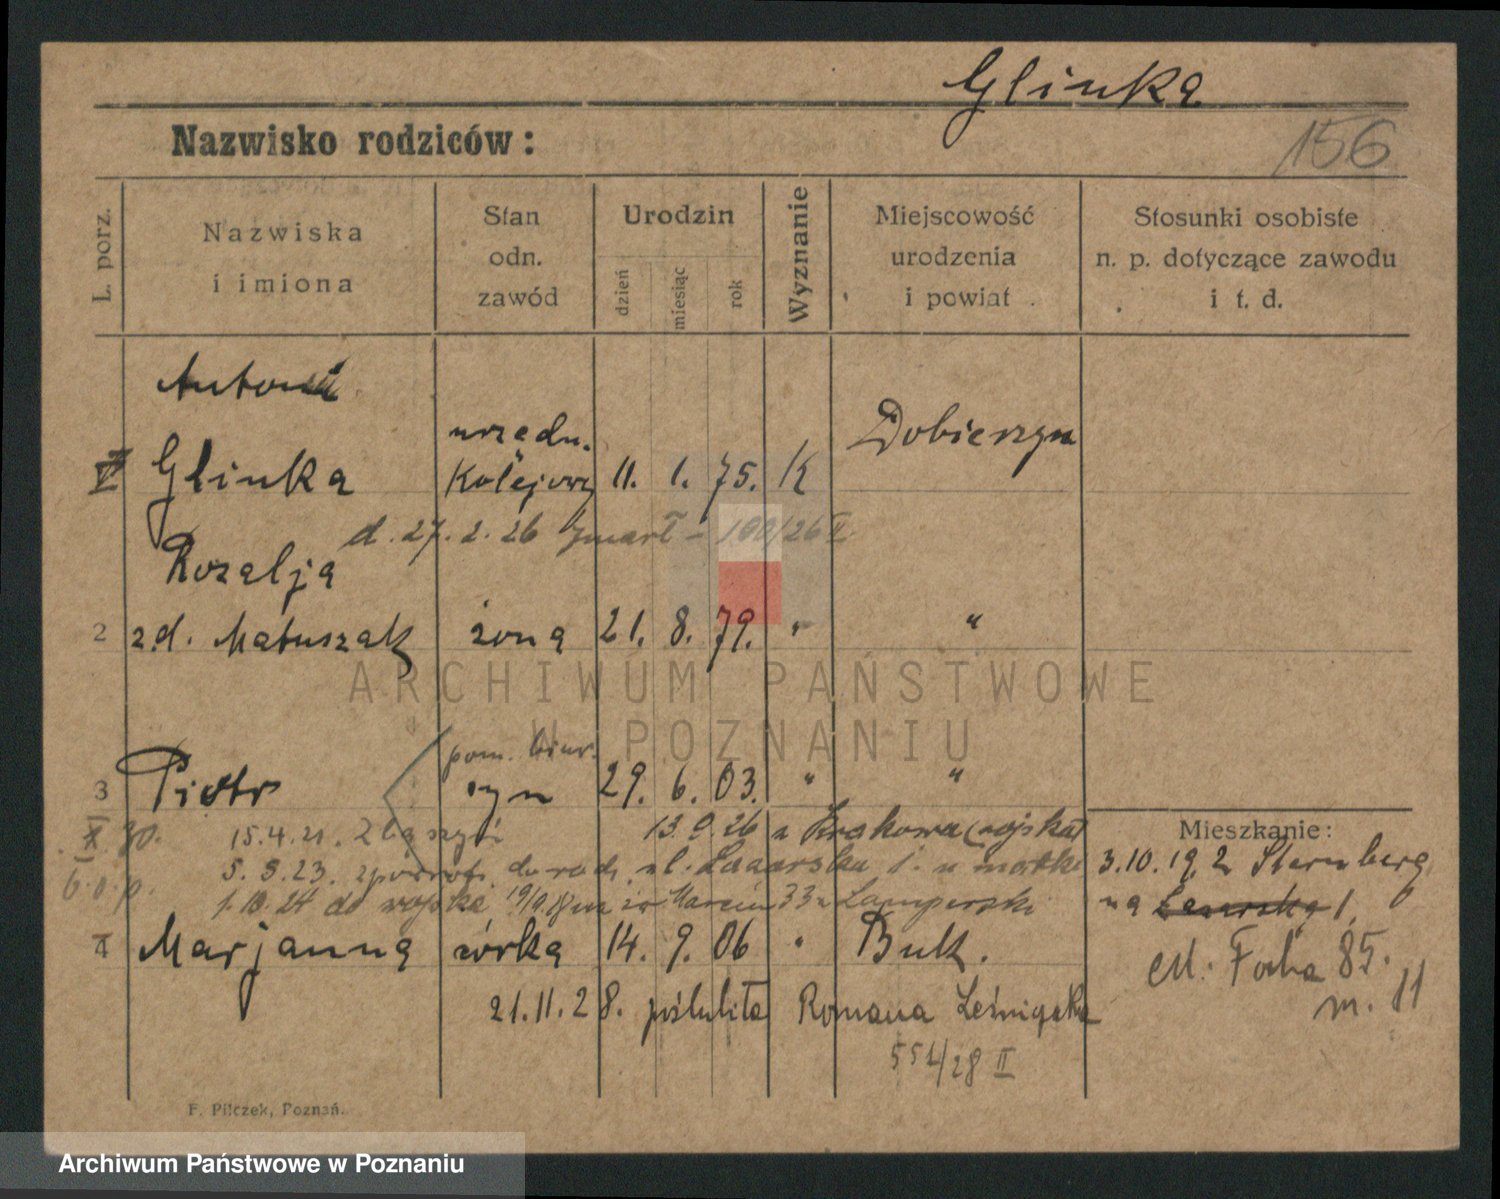 Glinka
156
Nazwisko rodziców:
L. porz.
Nazwiska
i imiona
Stan
odn.
zawód
Urodzin
dzień
miesiąc
rok
Wyznanie
Miejscowość
urodzenia
i powiat
Stosunki osobiste
n. p. dotyczące zawodu
i t. d.
Antoni
Glinka urzędn. kolejowy 11. 1. 75. K Dobieszyn
d. 27. 2. 26 zmarł - 190/26 II
Rozalja
2 z d. Matuszak żona 21. 8. 79. " "
3 Piotr pom. biur. syn 29. 6. 03. " "
30. 15.4.21. Zbąszyń 13.9.26 z Krakowa (wojska)
b.o.p. 5.3.23. do rodz. ul. u matki
1.10.24 do wojska Marcin 33
4 Marjanna córka 14. 9. 06 " Buk.
21.11.28. poślubiła Romana Leśniaka
551/28 II
Mieszkanie:
3.10.19. z Sternberg
na Łazarska 1.
Focha 85.
m. 11
F. Pilczek, Poznań.
ARCHIWUM PAŃSTWOWE
W POZNANIU
Archiwum Państwowe w Poznaniu